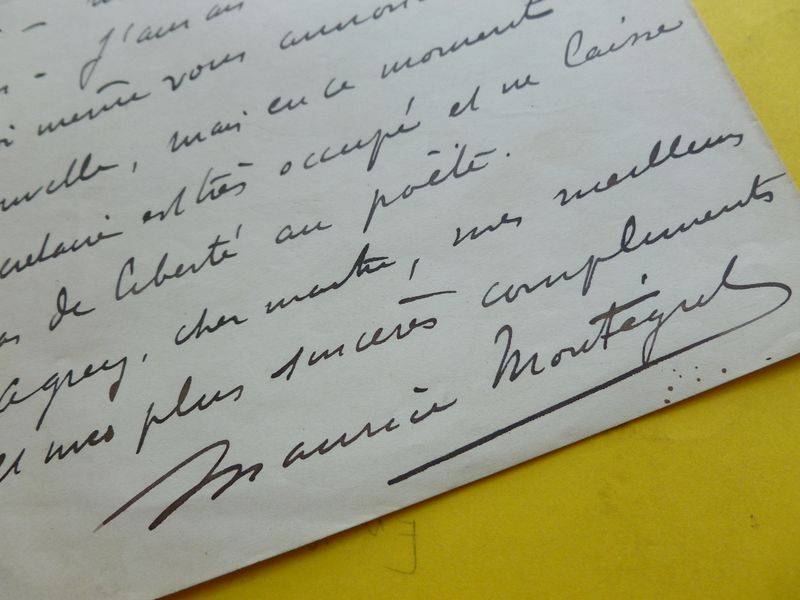 - J'aurais
même vous annon
mais en ce moment
crétaire est très occupé et ne laisse
as de liberté au poète.
Agréez, cher maitre, mes meilleurs
et mes plus sincères compliments
Maurice Montégut